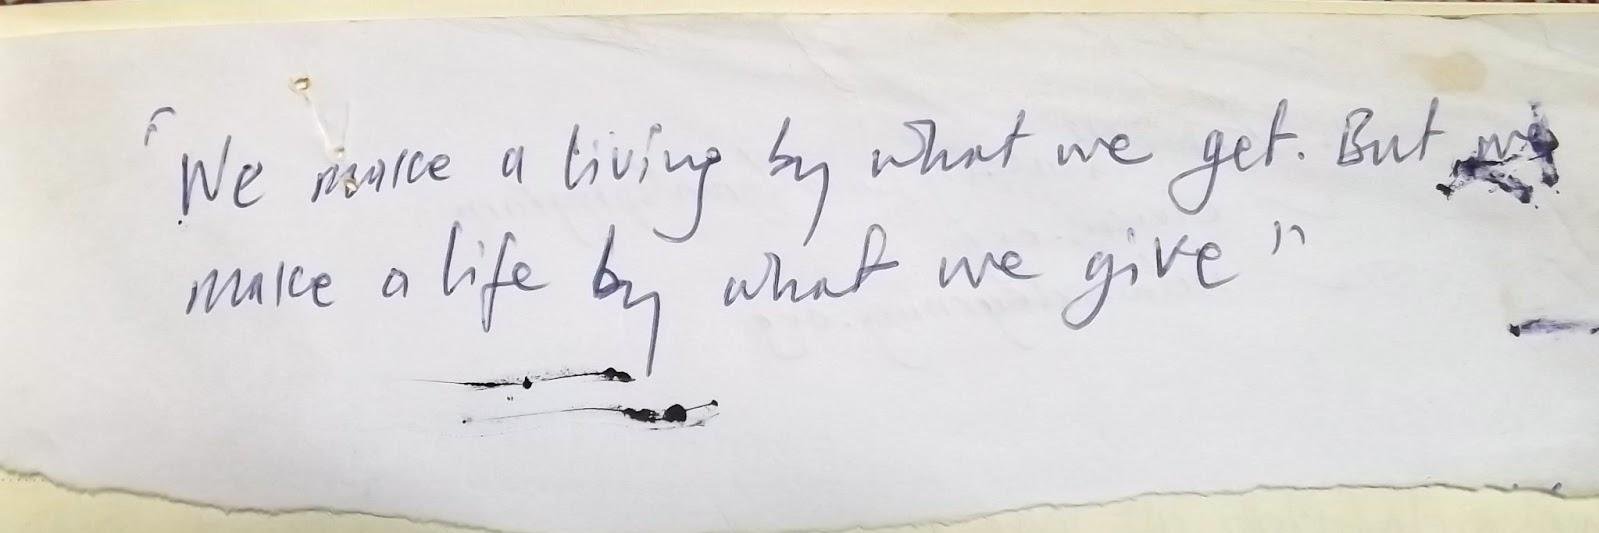 "We make a living by what we get. But we
make a life by what we give"